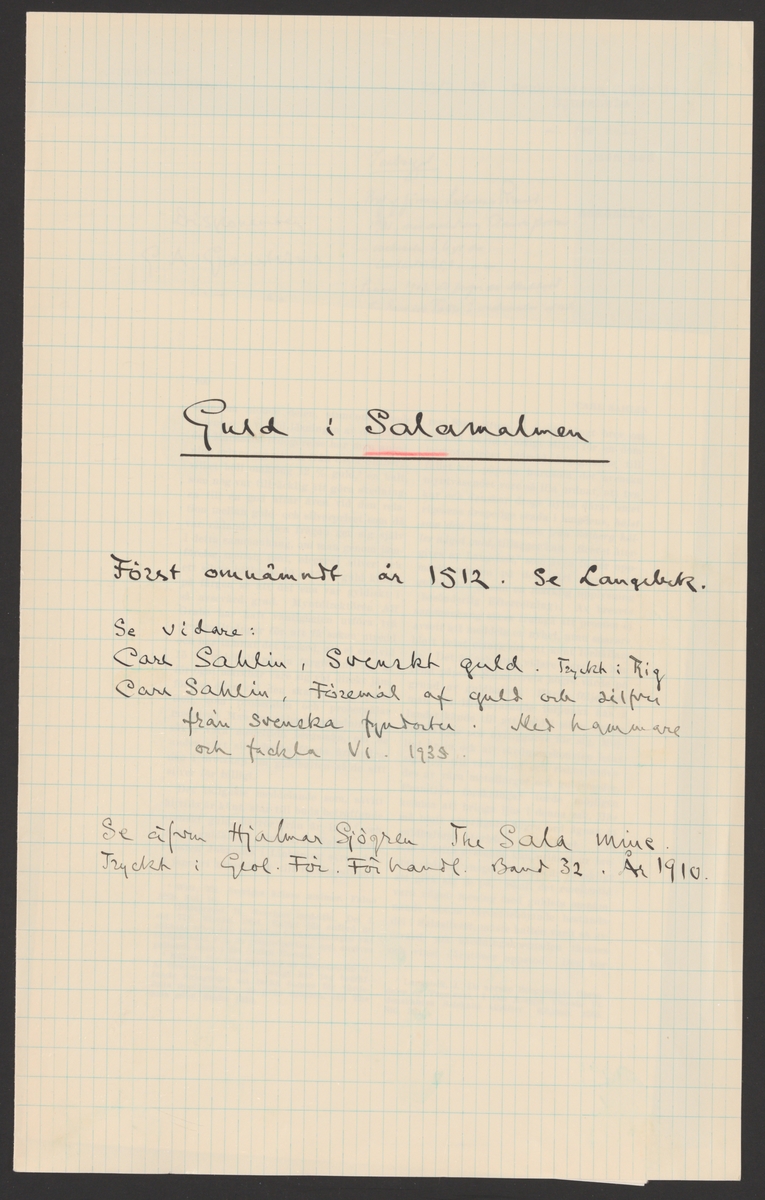 Guld i Salamalmen
Först omnämndt år 1512. Se Langebek.
Se vidare:
Carl Sahlin, Svenskt guld. Tryckt i Rig
Carl Sahlin, Föremål af guld och silfver
från svenska fyndorter. Med hammare
och fackla VI. 1935.
Se äfven Hjalmar Sjögren The Sala mine.
Tryckt i Geol. För. Förhandl. Band 32. År 1910.